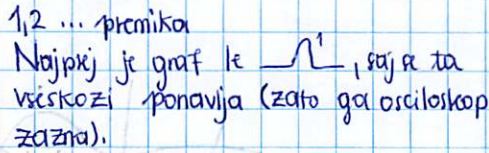 1,2 ... premika
Najprej je graf le 1, saj se ta
vseskozi ponavlja (zato ga osciloskop
zazna).